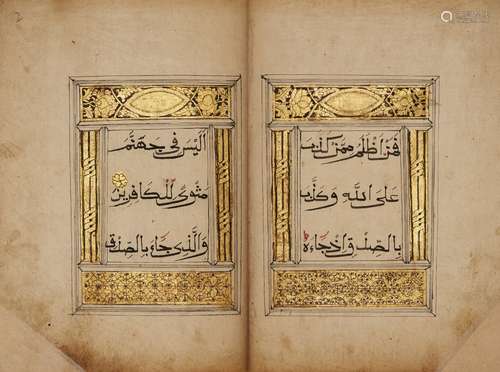 فمن اظلم ممن كذب
على الله وكذب
بالصدق اذ جاءه
اليس في جهنم
مثوى للكافرين
والذي جاء بالصدق
2